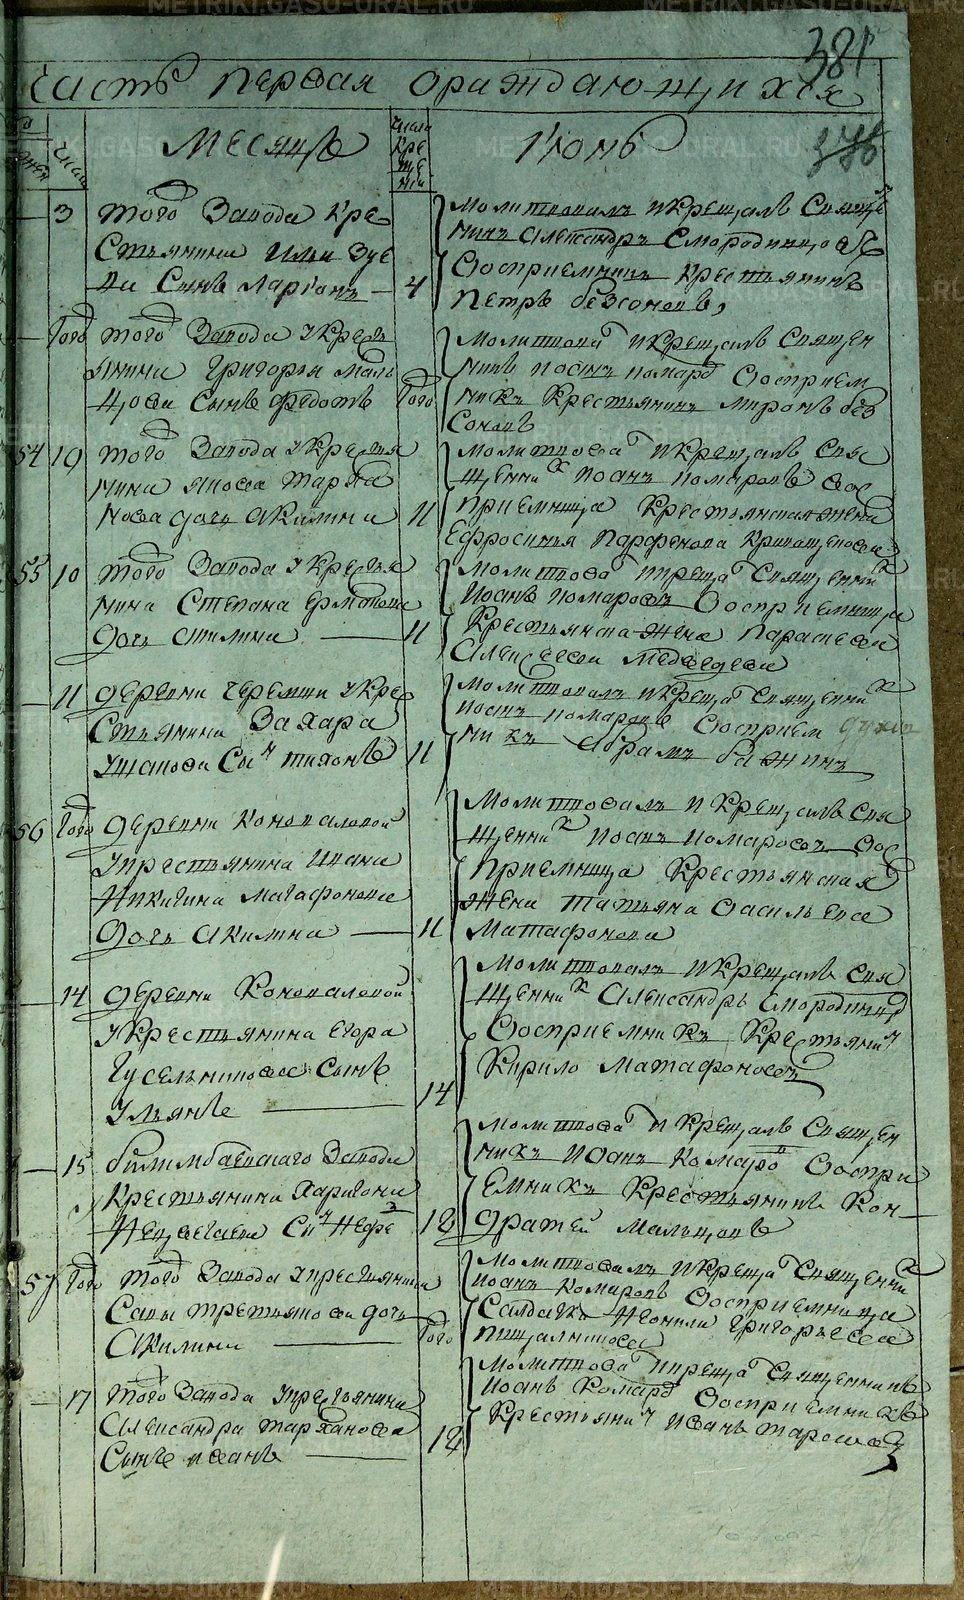 381
Часть первая оражdающихся
376
числа
Месяцъ
числа кре ще нія
Іюнь
3
того Завода кре
стьянина Ильи Зуе
ва Сынъ Ларіонъ
4
молитвовалъ и крещалъ Свяще
никъ Александръ Смородинцовъ
Восприемникъ крестьянинъ
Петръ безсоновъ,
того
того Завода у кресть
янина Григорья Маль
цова Сынъ Федотъ
того
молитвова и крещалъ Священ
никъ иоанъ комаро восприем
никъ Крестьянинъ миронъ без
соновъ
54 19
того Завода у крестья
нина якова тарха
нова дочь Акилина
11
молитвова и крещалъ Свя
щенник иоанъ комаровъ вос
приемница Крестьянская жена
Ефросинья Парфенова
55 10
того Завода у крестья
нина Степана Ермакова
дочь Акилина
11
молитвова и креща Священник
иоанъ комаровъ Восприемница
Крестьянска жена Параскева
Алексеева Медведева
11
деревни черемши у кре
стьянина Захара
Ушакова Сы н тихонъ
11
молитвовалъ и креща Священник
иоанъ комаровъ Восприем
никъ Абрамъ бажинъ
56 того
деревни Коноваловой
у крестьянина Ивана
Никитина матафонова
дочь Акилина
11
молитвовалъ и крещалъ Свя
щенник иоанъ комаровъ вос
приемница Крестьянская
жена татьяна васильева
матафонова
14
деревни Коноваловой
у крестьянина Егора
Гусельникова Сынъ
Ульянъ
14
молитвовалъ и крещалъ Свя
щенник Александръ Смородинцо
Восприемникъ Крестьянин
Кирило матафоновъ
15
билимбаевскаго Завода
у крестьянина Харитона
18
молитвова и крещалъ Священ
никъ иоанъ комаро Воспри
емникъ Крестьянинъ Кон
дратей мальцовъ
57 того
того Завода у крестьянина
Савы третьякова дочь
Акилина
того
молитвовалъ и креща Священник
иоанъ комаровъ Восприемница
Салдатка Неонила Григорьева
пищальникова
17
того Завода у крестьянина
Александра тарханова
Сынъ иванъ
18
молитвова и креща Священникъ
иоанъ комаро Восприемникъ
Крестьянин иванъ тарасовъ
METRIKI.GASU-URAL.RU